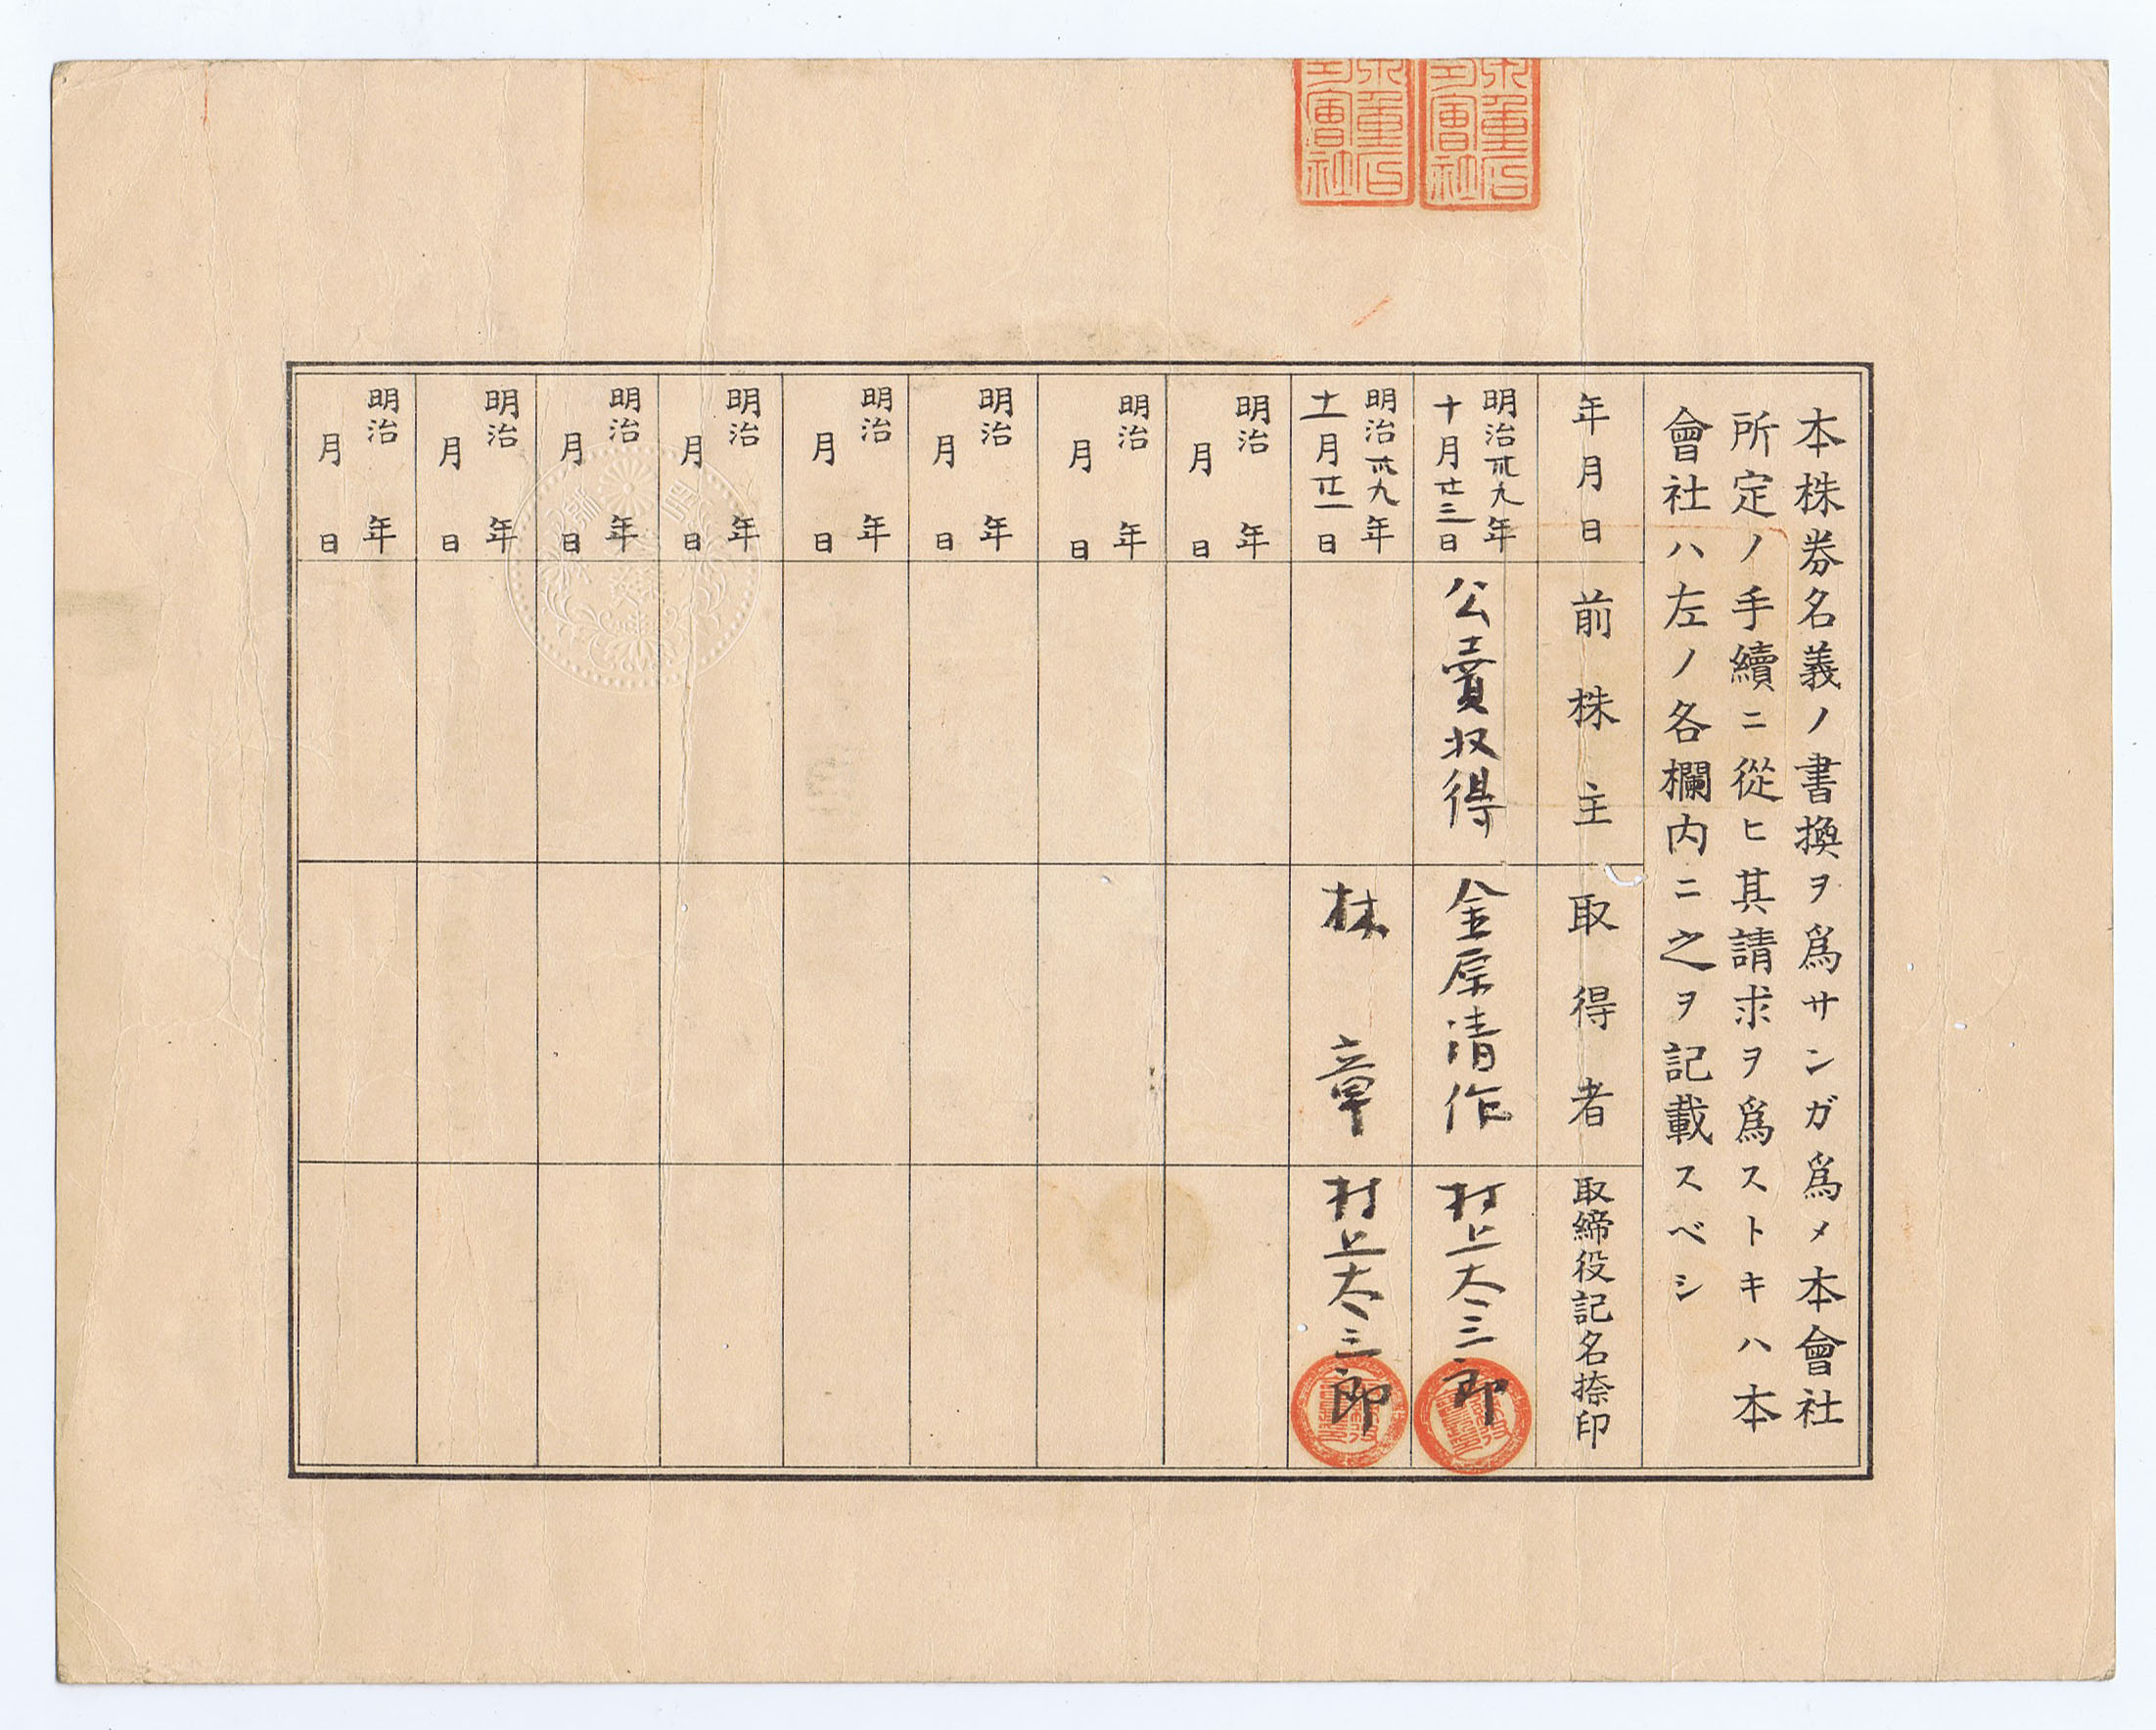 本株券名義ノ書換ヲ爲サンガ爲メ本會社
所定ノ手續ニ從ヒ其請求ヲ爲ストキハ本
會社ハ左ノ各欄内ニ之ヲ記載スベシ
年月日
前株主
取得者
取締役記名捺印
明治卅九年
十月廿三日
公賣収得
金原清作
村上太三郎
明治卅九年
十一月廿二日
林章
村上太三郎
明治 年
月 日
明治 年
月 日
明治 年
月 日
明治 年
月 日
明治 年
月 日
明治 年
月 日
明治 年
月 日
明治 年
月 日
會社
會社